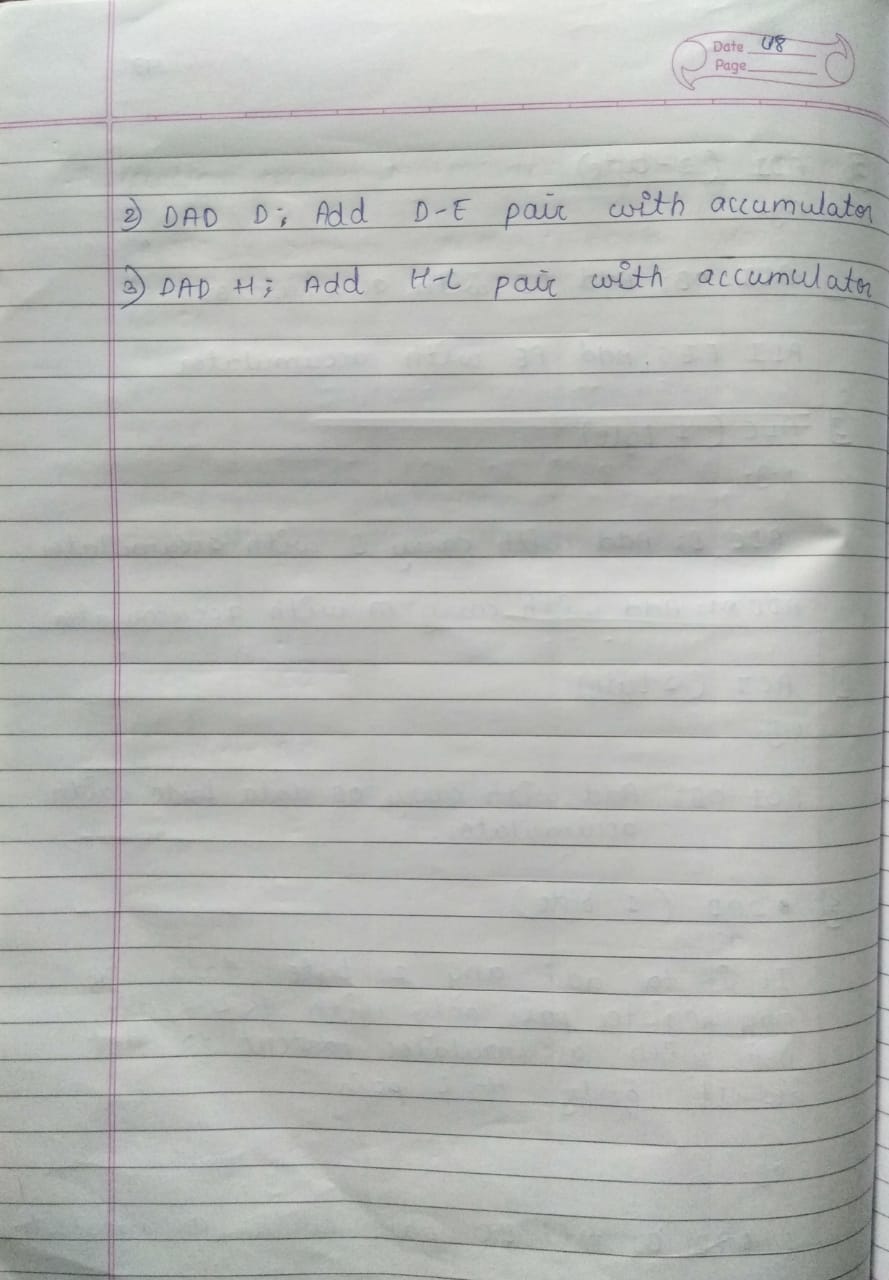 Date 48
Page
2) DAD D; Add D-E pair with accumulator
3) DAD H; Add H-L pair with accumulator